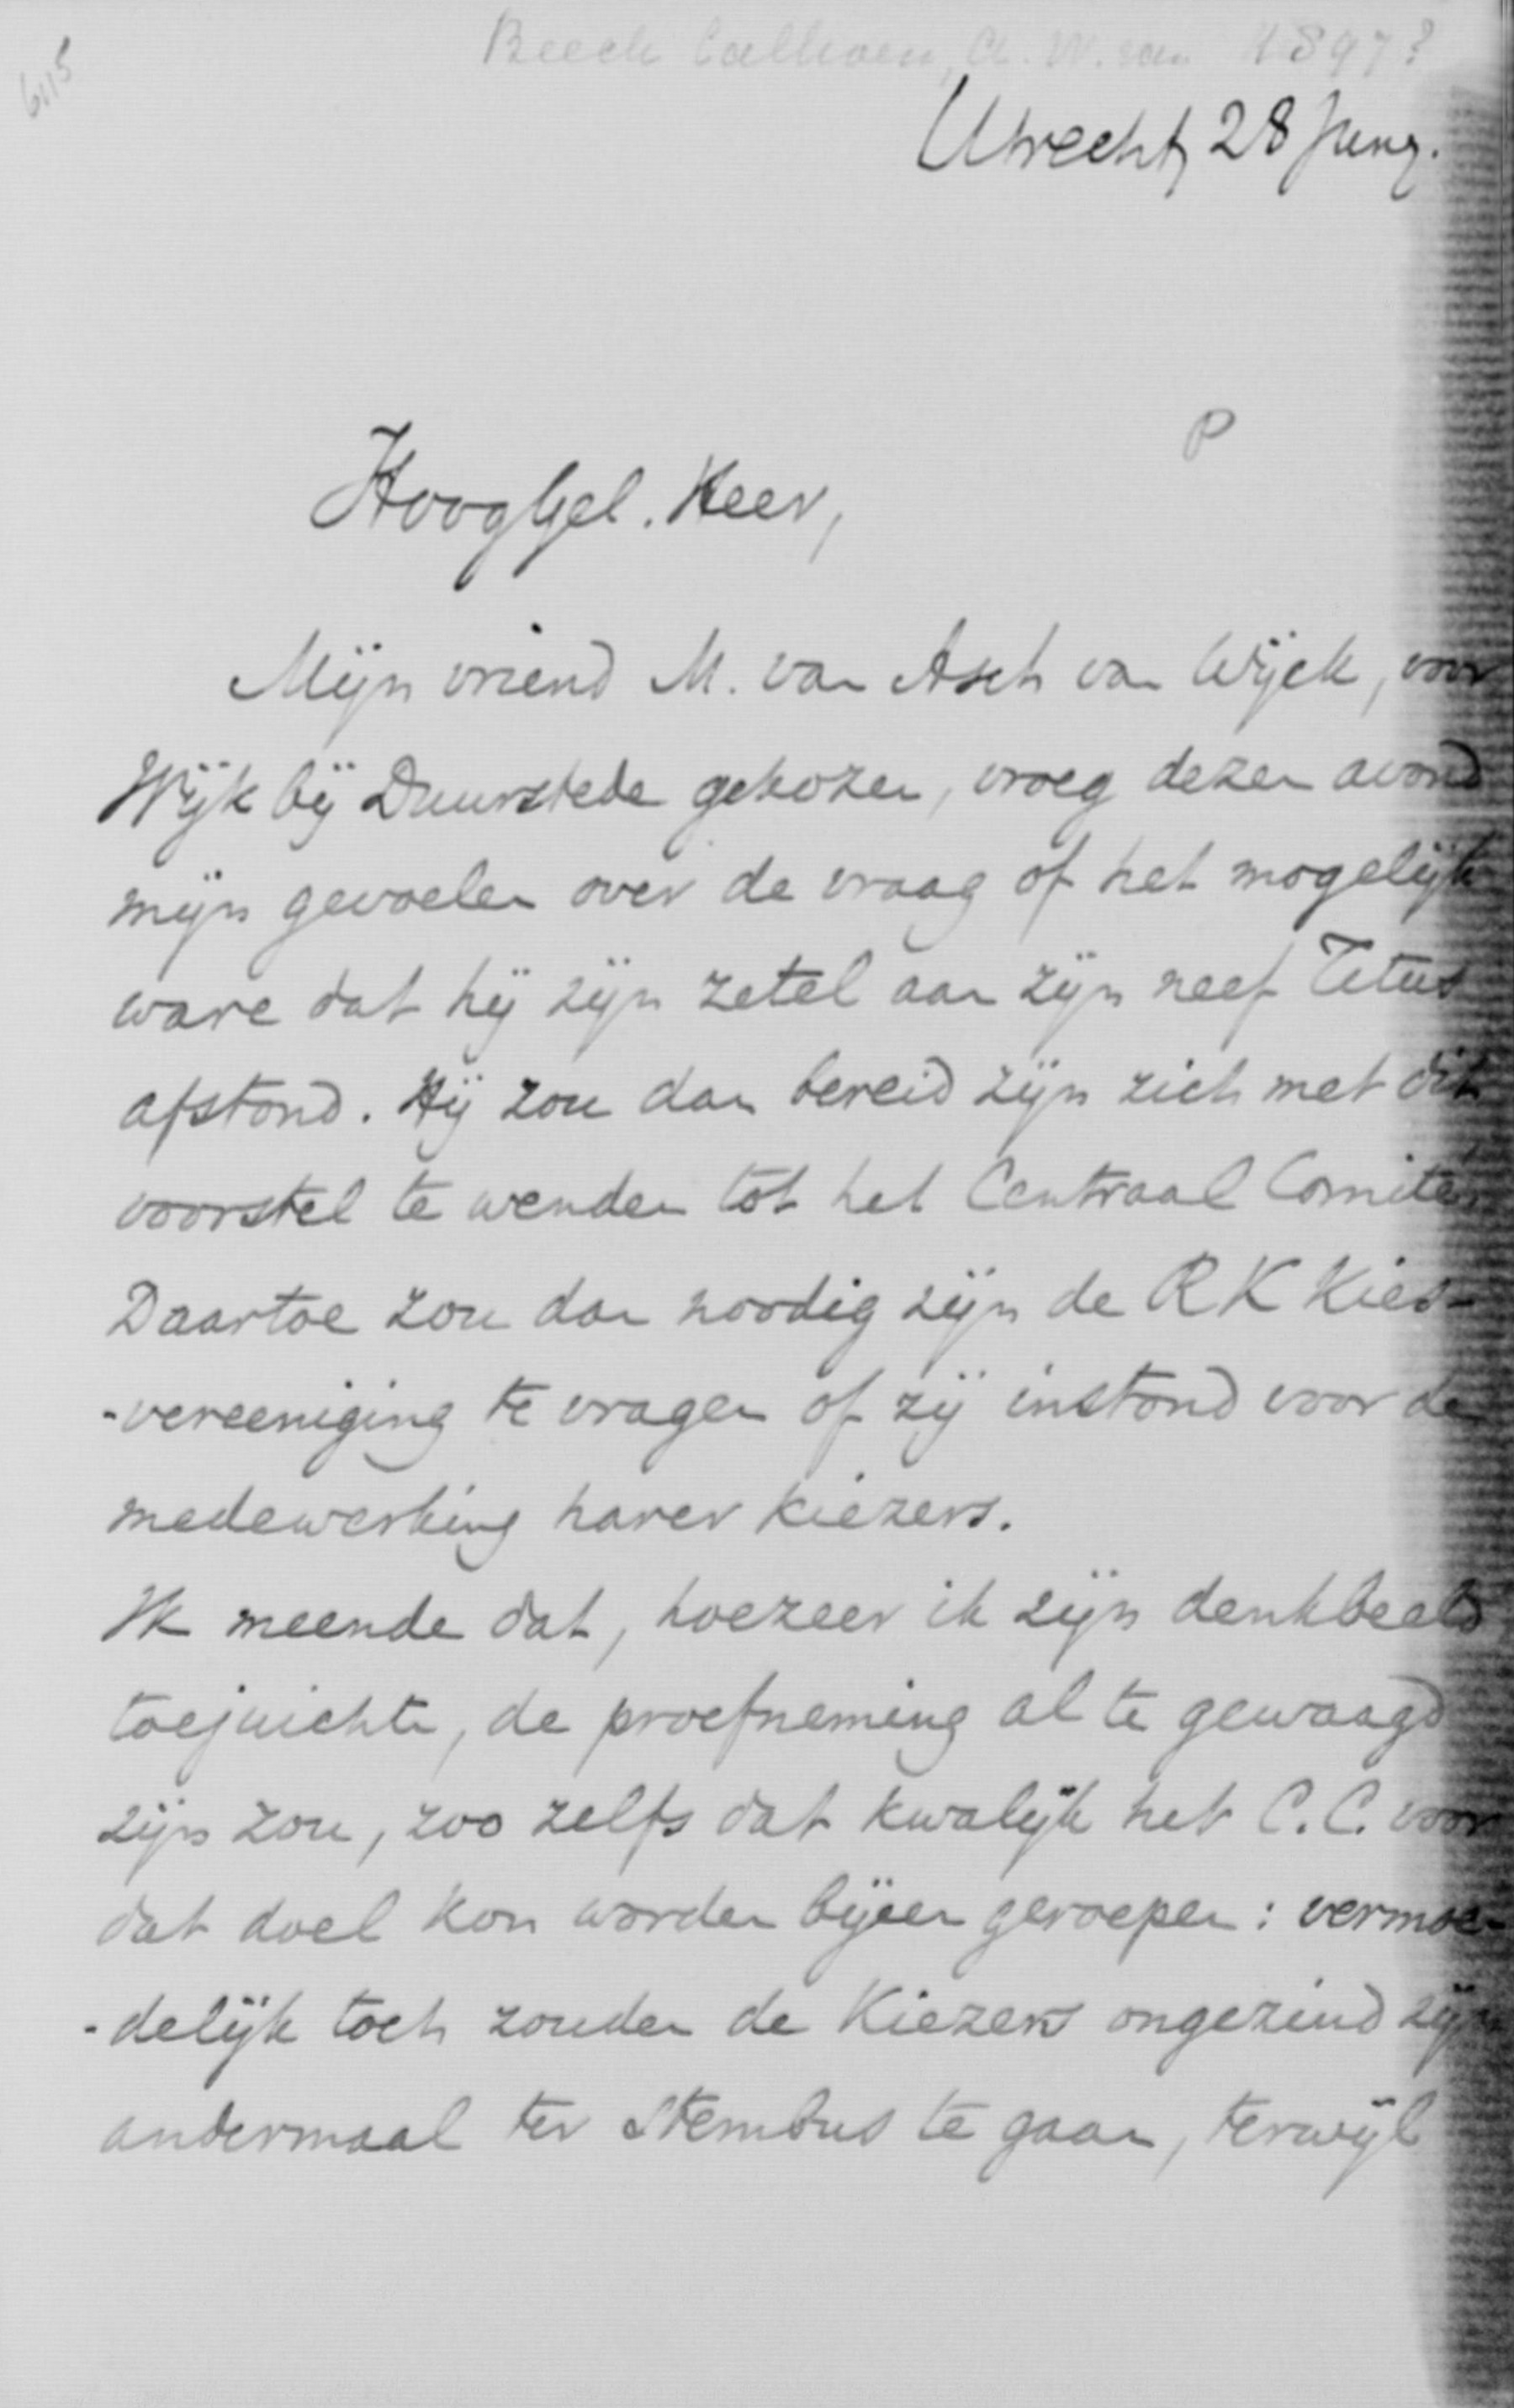 6115
Beeck Calkoen, A. W. van 1897?
Utrecht, 28 Juny.
P
HoogGel. Heer,
Mijn vriend M. van Asch van Wijck, voor
Wijk bij Duurstede gekozen, vroeg dezen avond
mijn gevoelen over de vraag of het mogelijk
ware dat hij zijn zetel aan zijn neef Titus
afstond. Hij zou dan bereid zijn zich met dit
voorstel te wenden tot het Centraal Comité.
Daartoe zou dan noodig zijn de RK Kies-
-vereeniging te vragen of zij instond voor de
medewerking harer kiezers.
Ik meende dat, hoezeer ik zijn denkbeeld
toejuichte, de proefneming al te gewaagd
zijn zou, zoo zelfs dat kwalijk het C.C. voor
dat doel kon worden bijeen geroepen: vermoe-
-delijk toch zouden de Kiezers ongezind zijn
andermaal ter Stembus te gaan, terwijl